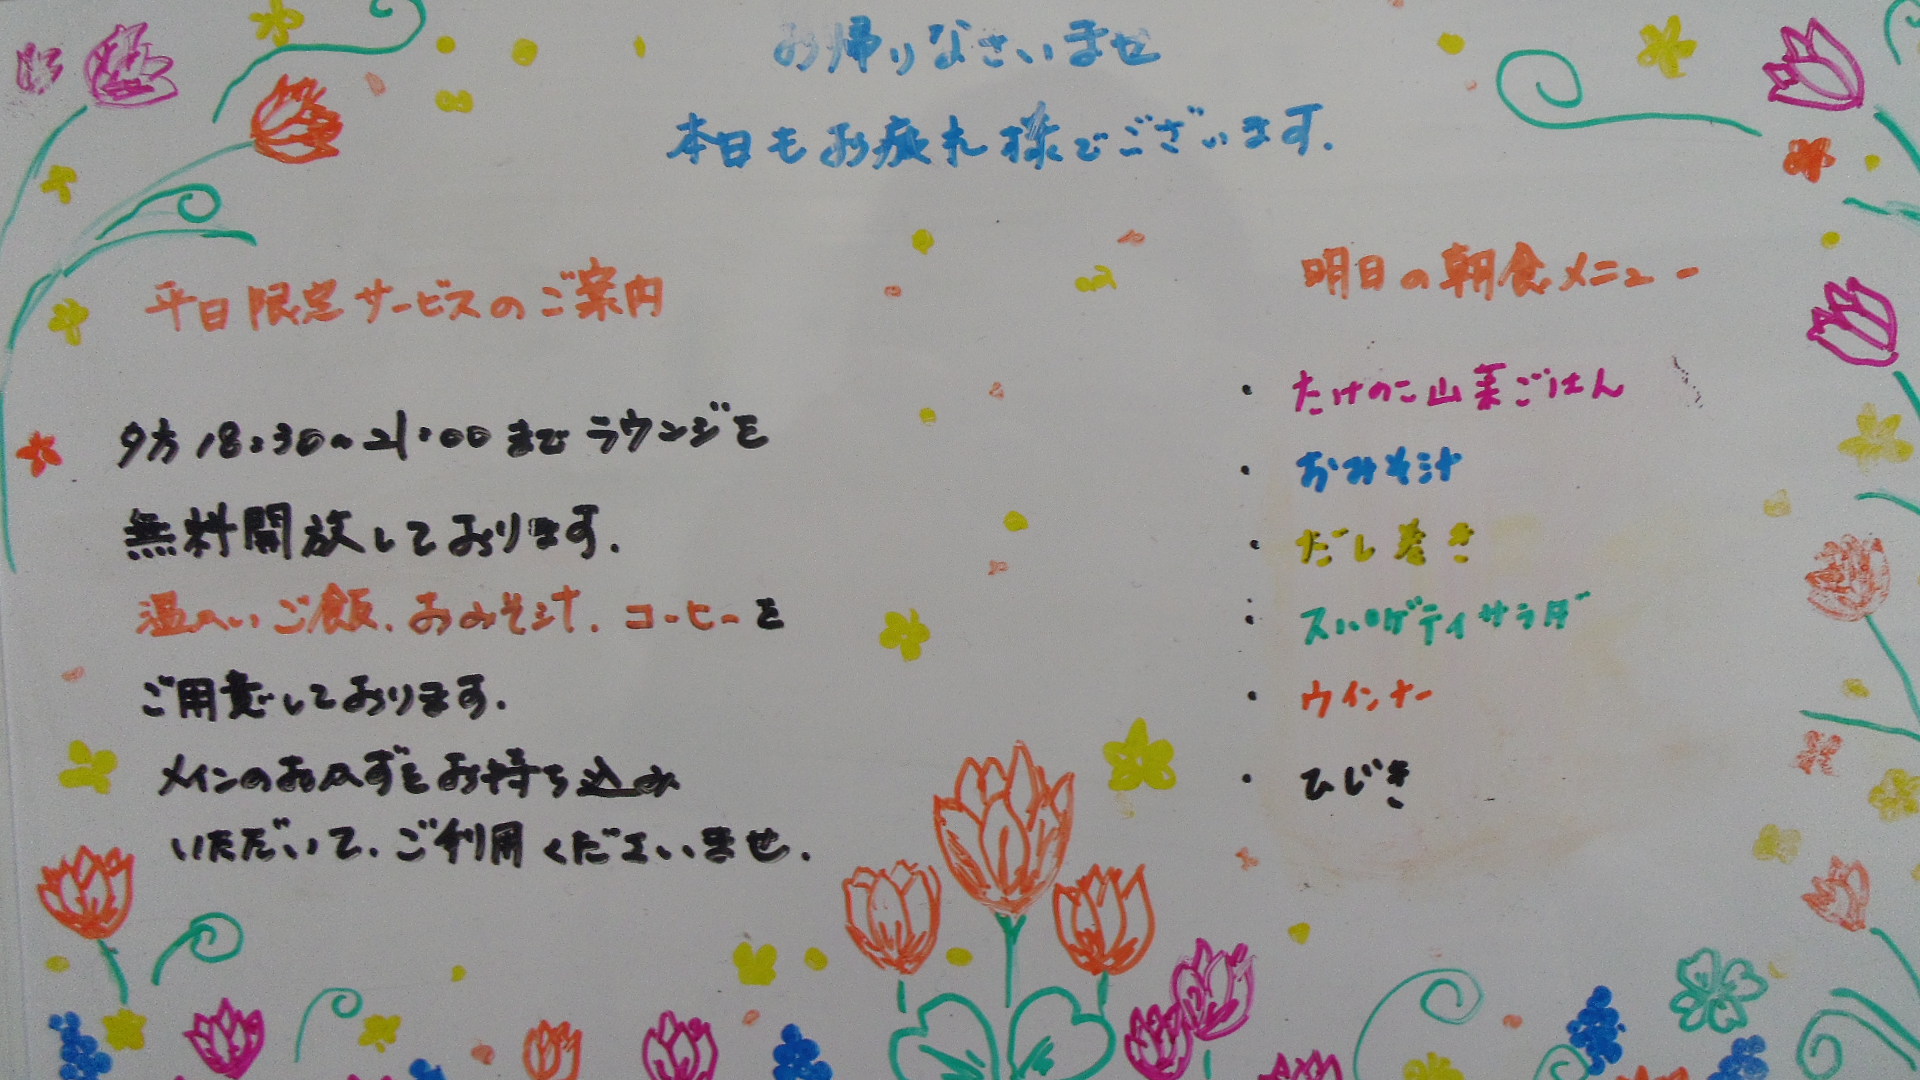 お帰りなさいませ
本日もお疲れ様でございます.
平日限定サービスのご案内
夕方18:30~21:00までラウンジを
無料開放しております.
温かいご飯.おみそ汁.コーヒーを
ご用意しております.
メインのおかずをお持ち込み
いただいて.ご利用くださいませ.
明日の朝食メニュー
・たけのこ山菜ごはん
・おみそ汁
・だし巻き
・スパゲティサラダ
・ウインナー
・ひじき